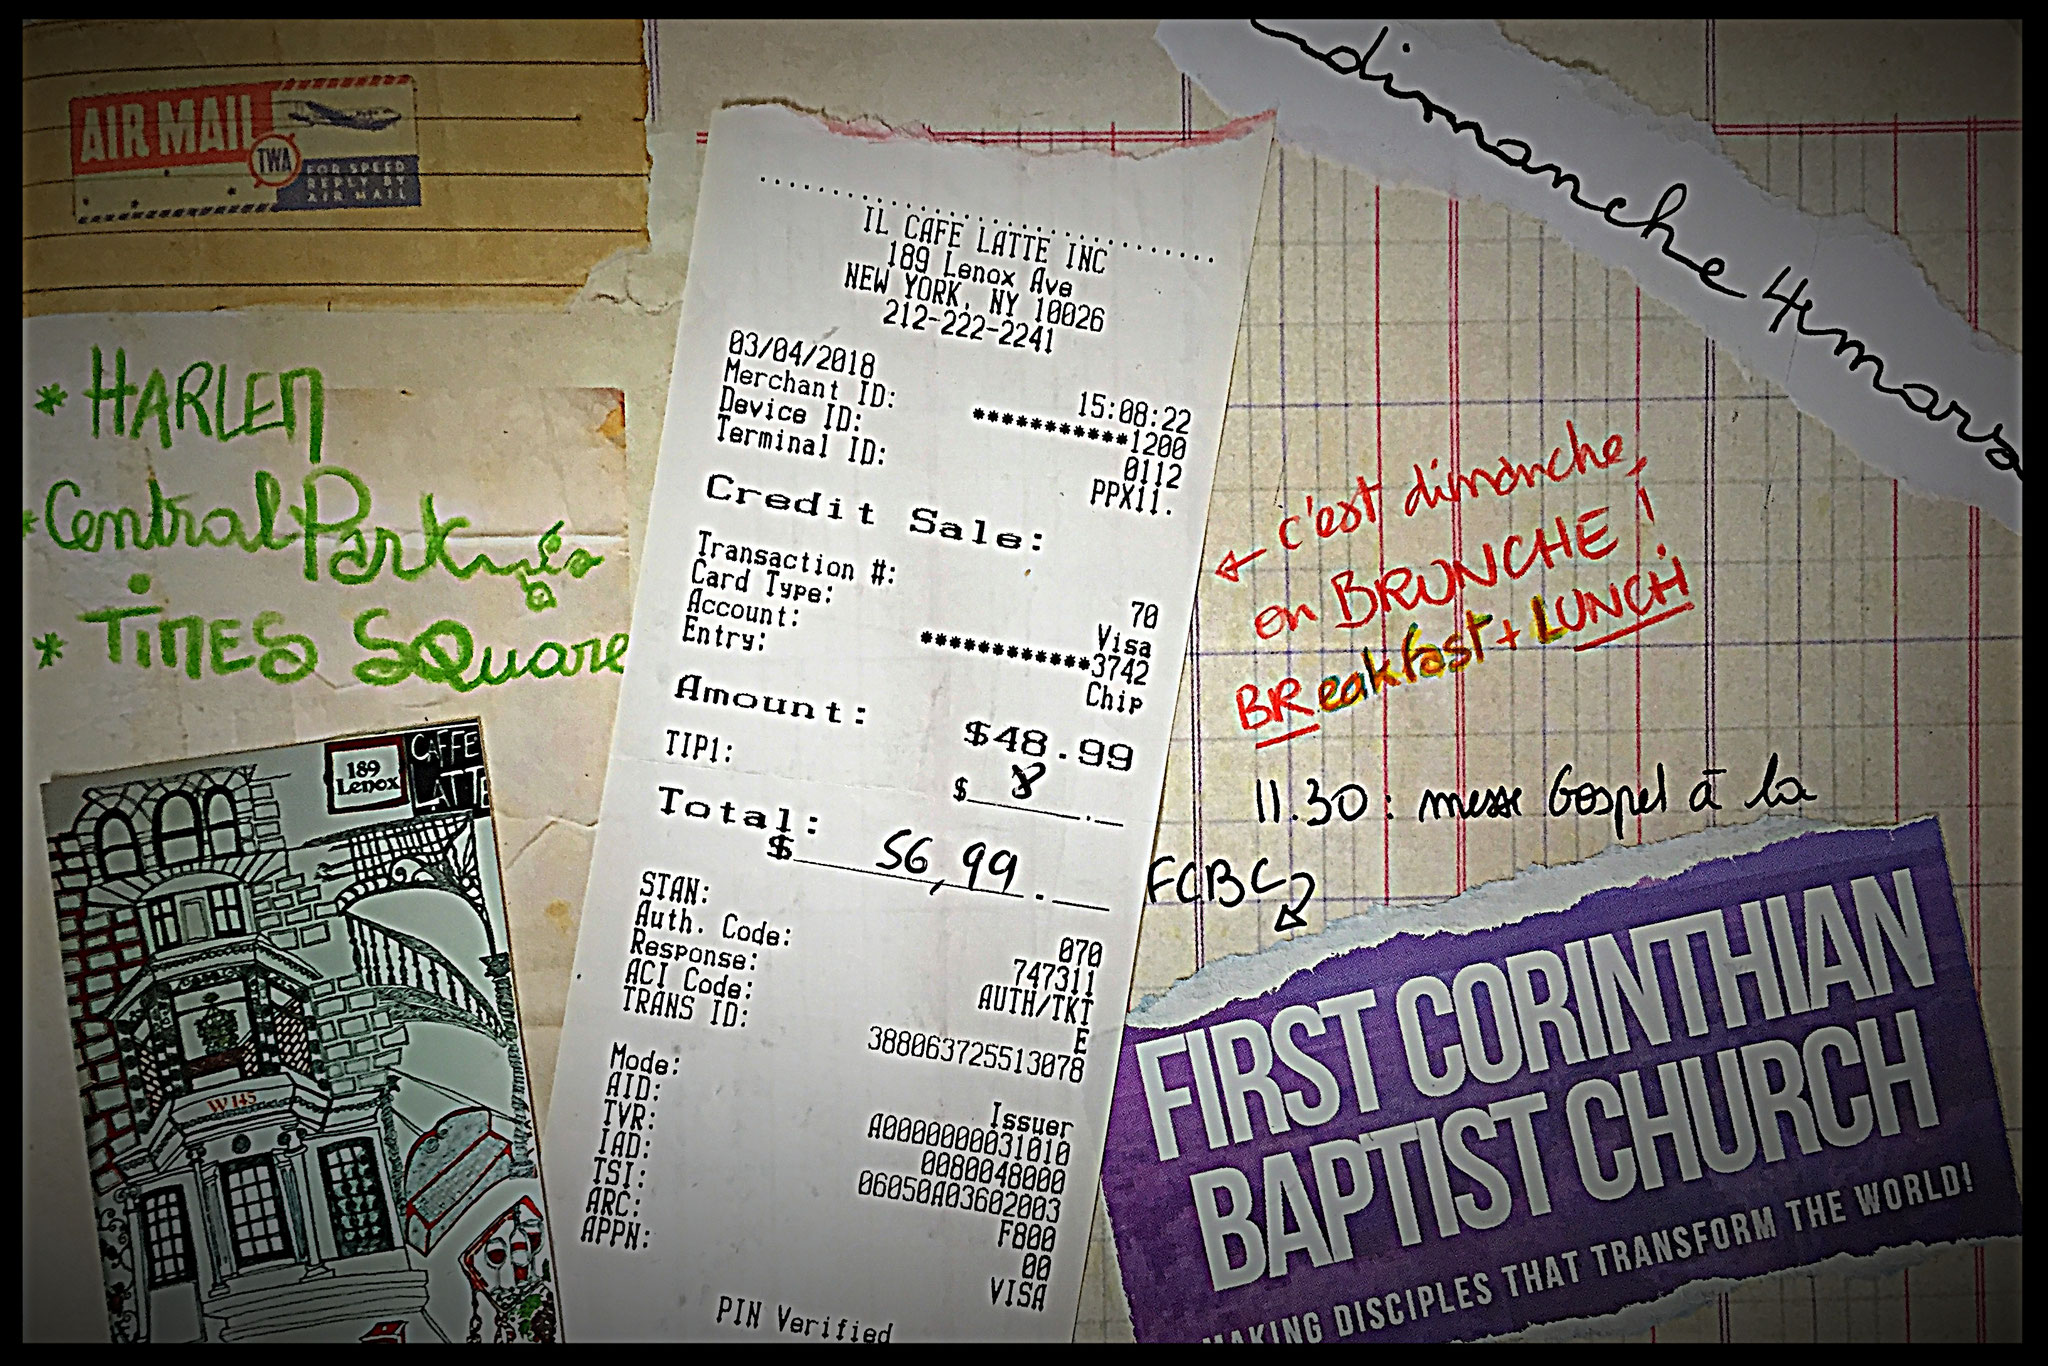 AIR MAIL
TWA
FOR SPEED
REPLY BY
AIR MAIL
dimanche 4 mars
* HARLEM
* Central Park
* TIMES SQuare
189
Lenox
CAFFE
LATTE
W 145
IL CAFE LATTE INC
189 Lenox Ave
NEW YORK, NY 10026
212-222-2241
03/04/2018 15:08:22
Merchant ID: ***********1200
Device ID: 0112
Terminal ID: PPX11.
Credit Sale:
Transaction #: 70
Card Type: Visa
Account: ************3742
Entry: Chip
Amount: $48.99
TIP1: $ 8
Total:
$ 56,99
STAN: 070
Auth. Code: 747311
Response: AUTH/TKT
ACI Code: E
TRANS ID: 388063725513078
Mode: Issuer
AID: A0000000031010
TVR: 0080048000
IAD: 06050A03602003
TSI: F800
ARC: 00
APPN: VISA
PIN Verified
← c'est dimanche,
on BRUNCHE !
BReakfast + LUNCH
11.30 : messe Gospel à la
FCBC
FIRST CORINTHIAN
BAPTIST CHURCH
MAKING DISCIPLES THAT TRANSFORM THE WORLD!